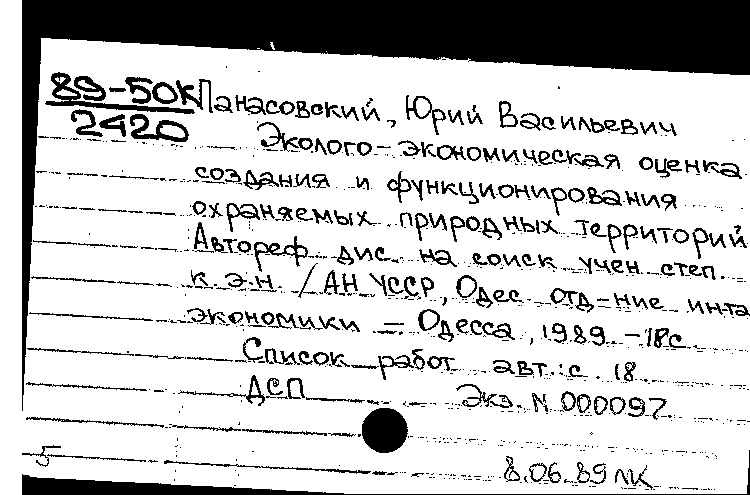 89-50К Панасовский, Юрий Васильевич
2420 Эколого-экономическая оценка
создания и функционирования
охраняемых природных территорий
Автореф дис. на соиск учен степ.
к э.н. / АН УССР, Одес отд-ние ин-та
экономики = Одесса, 1989. - 18с.
Список работ авт.: с. 18.
ДСП Экз. N 000097
5 8.06.89 ЛК